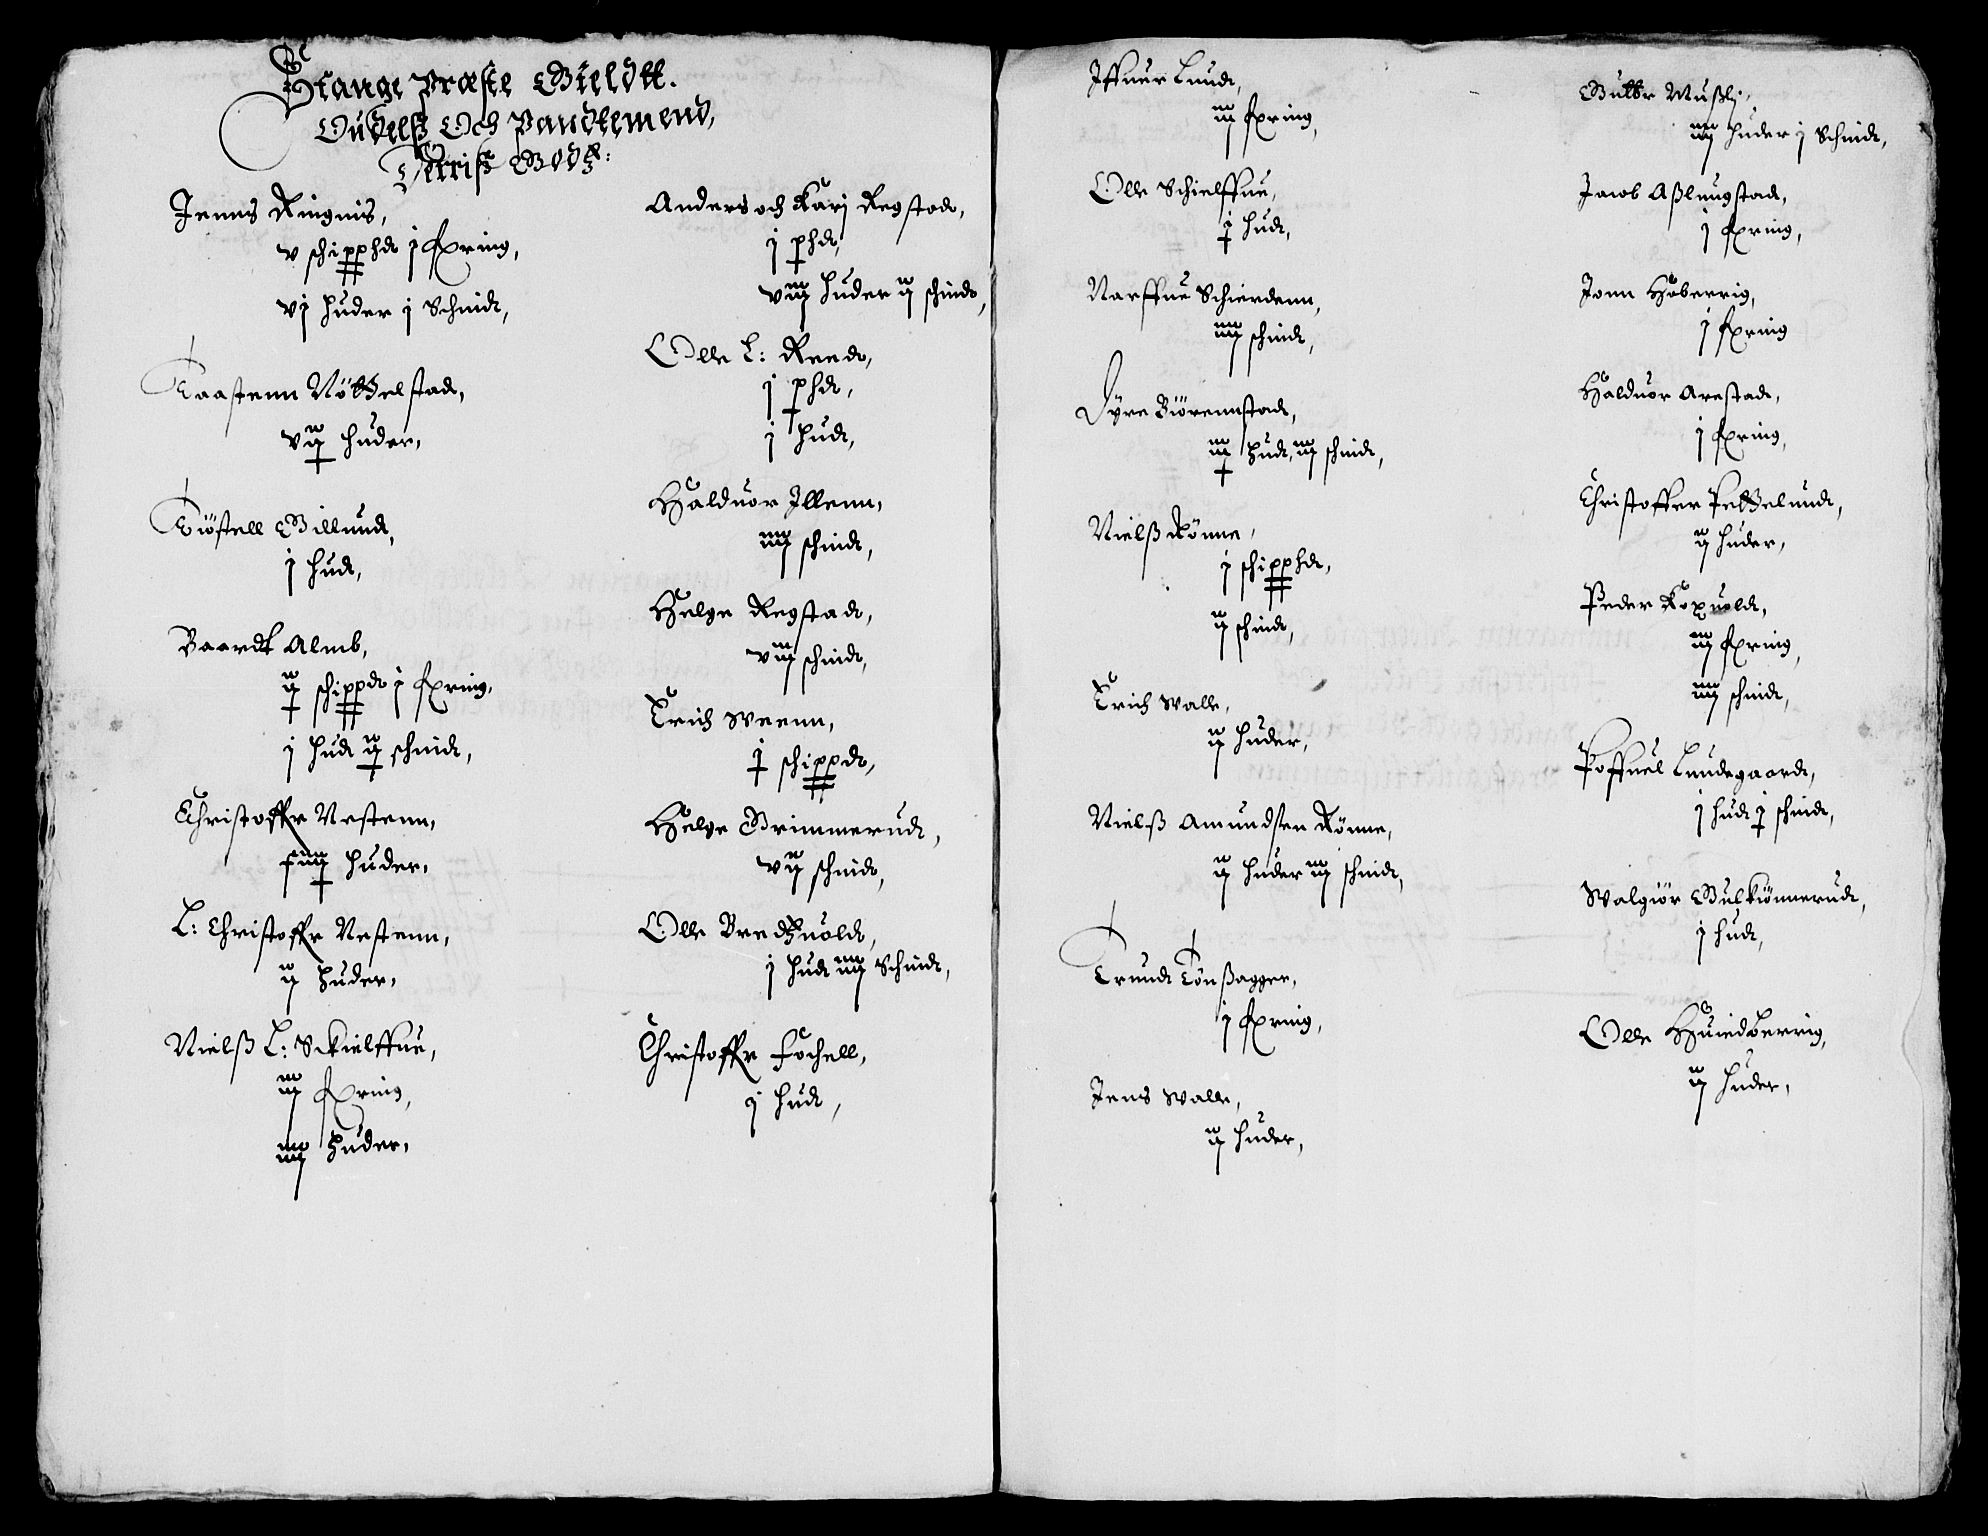 Stange Præste Gieldtt.
Oudelß Och Pandtemend,
Derriß Godtz:
Jenns Ringnis,
v schippd j fxring,
vj huder j Schind,
Taastenn Nötttelstad,
vij huder,
Tiöstell Gillund,
j hud,
Baardt Almb,
ij schippd j fxring,
j hud ij schind,
Christoffr Vestenn,
huder,
L: Christoffr Vestenn,
ij huder,
Nielß L: Skielffue,
iij fxring,
iiij huder,
Anders och Kari Regstad,
j phd,
viij huder ij schind,
Olle L: Reed,
j phd,
j hud,
Halduor Illenn,
iiij schind,
Helge Regstad,
viij schind,
Erich Weenn,
j schippd,
Helge Grimmerud,
vij schind,
Olle Bredtzuold,
j hud iiij Schind,
Christoffr Fochell,
j hud,
Iffuer Lund,
iij fxring,
Olle Schielffue,
j hud,
Narffue Schierdenn,
iiij schind,
Dyre Biörennstad,
iij hud, iij schind,
Nielß Rönne,
j schippd,
ij schind,
Erich Walle,
ij huder,
Nielß Amundsen Rönne,
ij huder iij schind,
Trund Tönßagger,
j fxring,
Jens Walle,
ij huder,
Gulbr Mußlj,
iiij huder j Schind,
Jacob Aßlungstad,
j fxring,
Jonn Höberrig,
j fxring
Halduor Arestad,
j fxring,
Christoffer Pettelund,
ij huder,
Peder Kopuold,
iij fxring,
iiij schind,
Poffuel Lundegaard,
j hud j schind,
Walgiör Gulkiönnerud,
j hud,
Olle Huiedberrig,
ij huder,